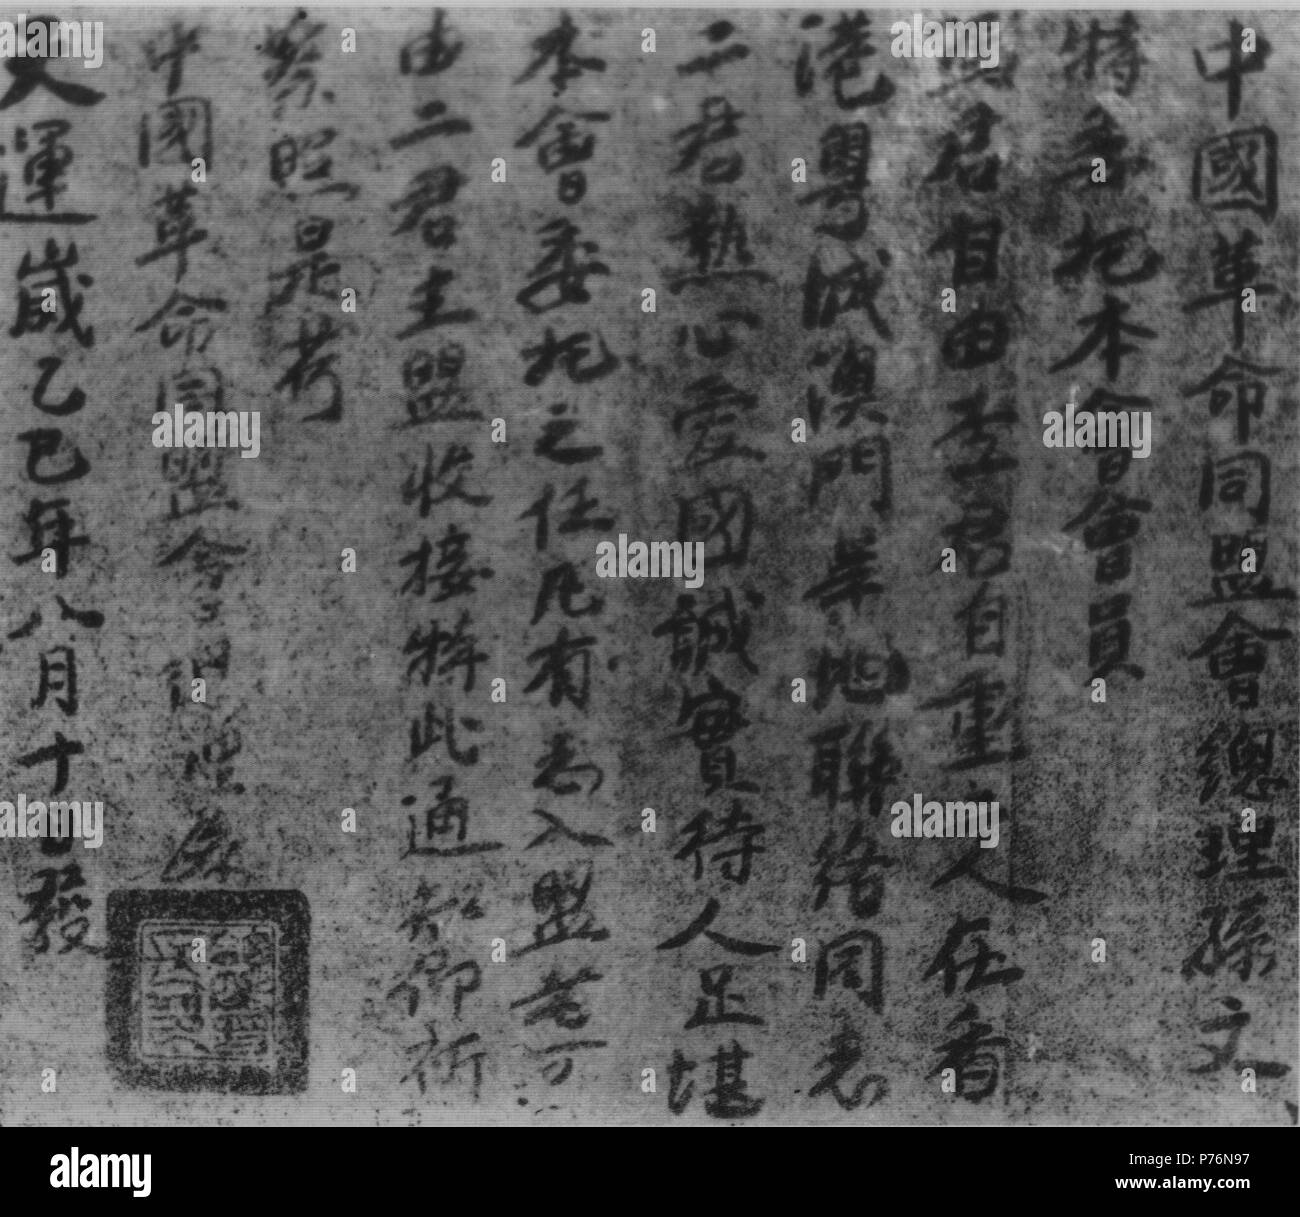 中國革命同盟會總理孫文
特委托本會會員
馮君自由李君自重二人在香
港粵城澳門等地聯絡同志
二君熱心愛國誠實待人足堪
本會委托之任凡有志入盟者可
由二君主盟收接特此通知仰祈
察照是荷
中國革命同盟會總理孫
天運歲乙巳年八月十日發
alamy
Image ID: P76N97
www.alamy.com